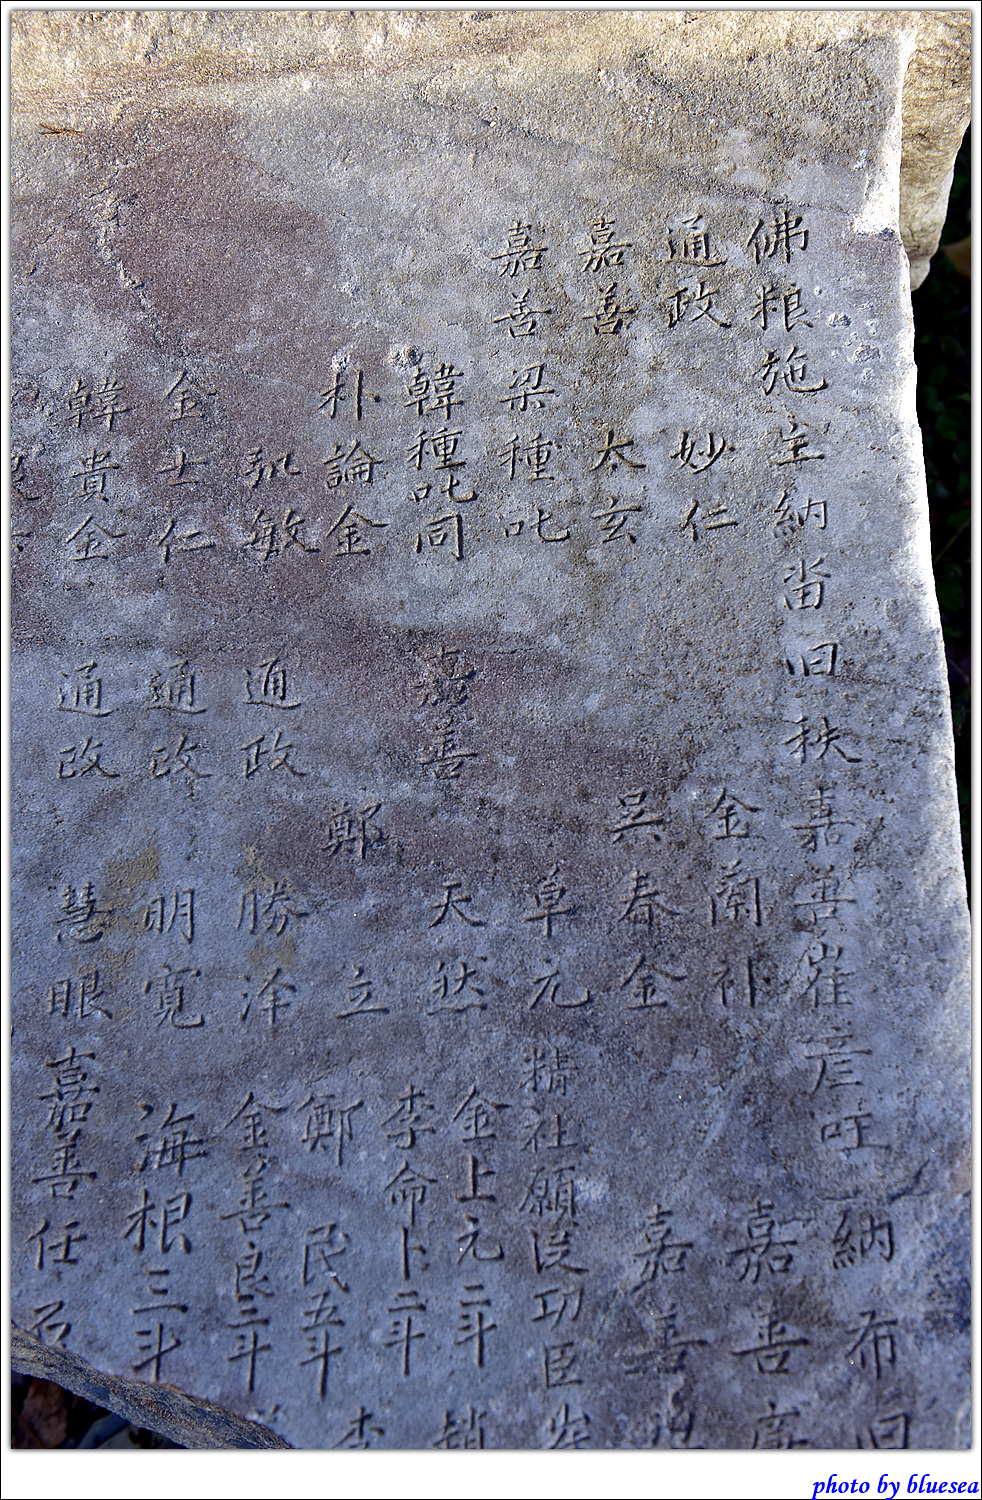 佛粮施主納畓旧秩嘉善崔彦吐納布旧
通政妙仁金蘭補嘉善
嘉善太玄吳春金嘉善
嘉善梁種叱卓元精社願設功臣
韓種叱同嘉善天然金上元二斗趙
朴論金鄭立李命卜二斗李
弘敏通政勝淨鄭民五斗
金士仁通政明寬金善良二斗
韓貴金通政慧眼海根三斗
嘉善任
photo by bluesea